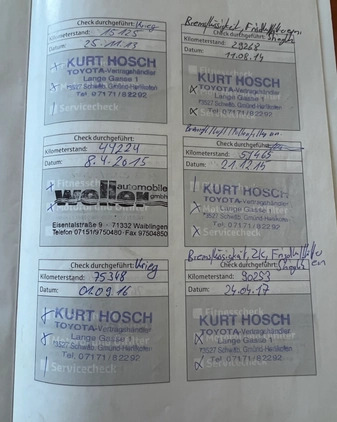 Check durchgeführt: Krieg
Kilometerstand: 15125
Datum: 25.11.13
KURT HOSCH
TOYOTA-Vertragshändler
Lange Gasse 1
73527 Schwäb. Gmünd-Herlikofen
Tel. 07171/82292
Servicecheck
Bremsflüssigkeit,
Kilometerstand: 29268
Datum: 11.08.14
KURT HOSCH
TOYOTA-Vertragshändler
Lange Gasse 1
73527 Schwäb. Gmünd-Herlikofen
Tel. 07171/82292
Servicecheck
Check durchgeführt:
Kilometerstand: 44224
Datum: 8.4.2015
weller automobile gmbh
Eisentalstraße 9 · 71332 Waiblingen
Telefon 07151/9750480 · Fax 97504850
Check durchgeführt:
Kilometerstand: 59465
Datum: 21.12.15
KURT HOSCH
TOYOTA-Vertragshändler
Lange Gasse 1
73527 Schwäb. Gmünd-Herlikofen
Tel. 07171/82292
Servicecheck
Check durchgeführt: Krieg
Kilometerstand: 75348
Datum: 01.09.16
KURT HOSCH
TOYOTA-Vertragshändler
Lange Gasse 1
73527 Schwäb. Gmünd-Herlikofen
Tel. 07171/82292
Servicecheck
Bremsflüssigkeit, ZK,
Check durchgeführt:
Kilometerstand: 90253
Datum: 24.04.17
KURT HOSCH
TOYOTA-Vertragshändler
Lange Gasse 1
73527 Schwäb. Gmünd-Herlikofen
Tel. 07171/82292
Servicecheck